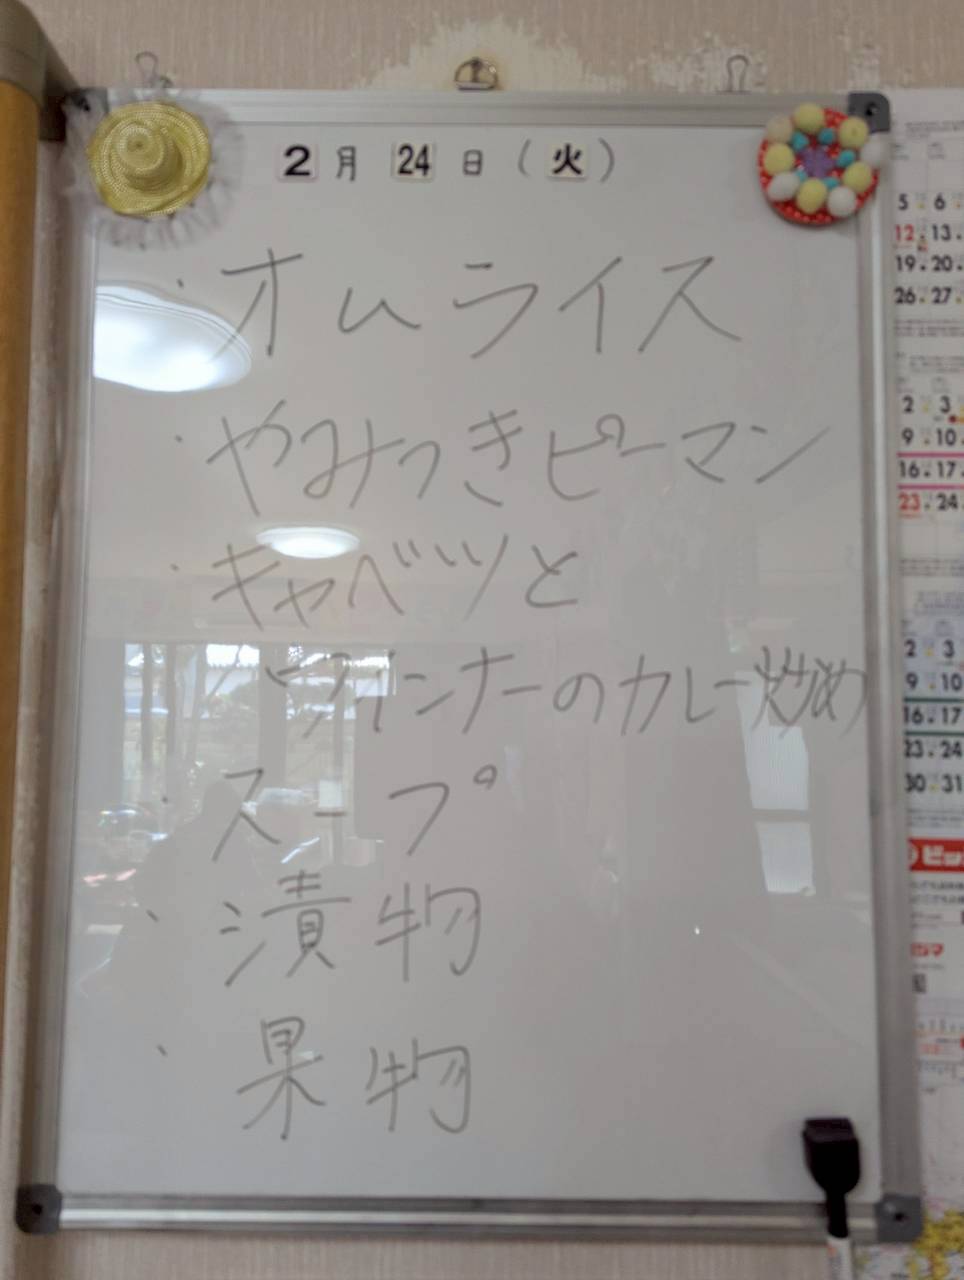 2月24日(火)
・オムライス
・やみつきピーマン
・キャベツと
ハーフィンナーのカレー炒め
・スープ
・漬物
・果物
5 6
12 13
19 20
26 27
2 3
9 10
16 17
23 24
2 3
9 10
16 17
23 24
30 31